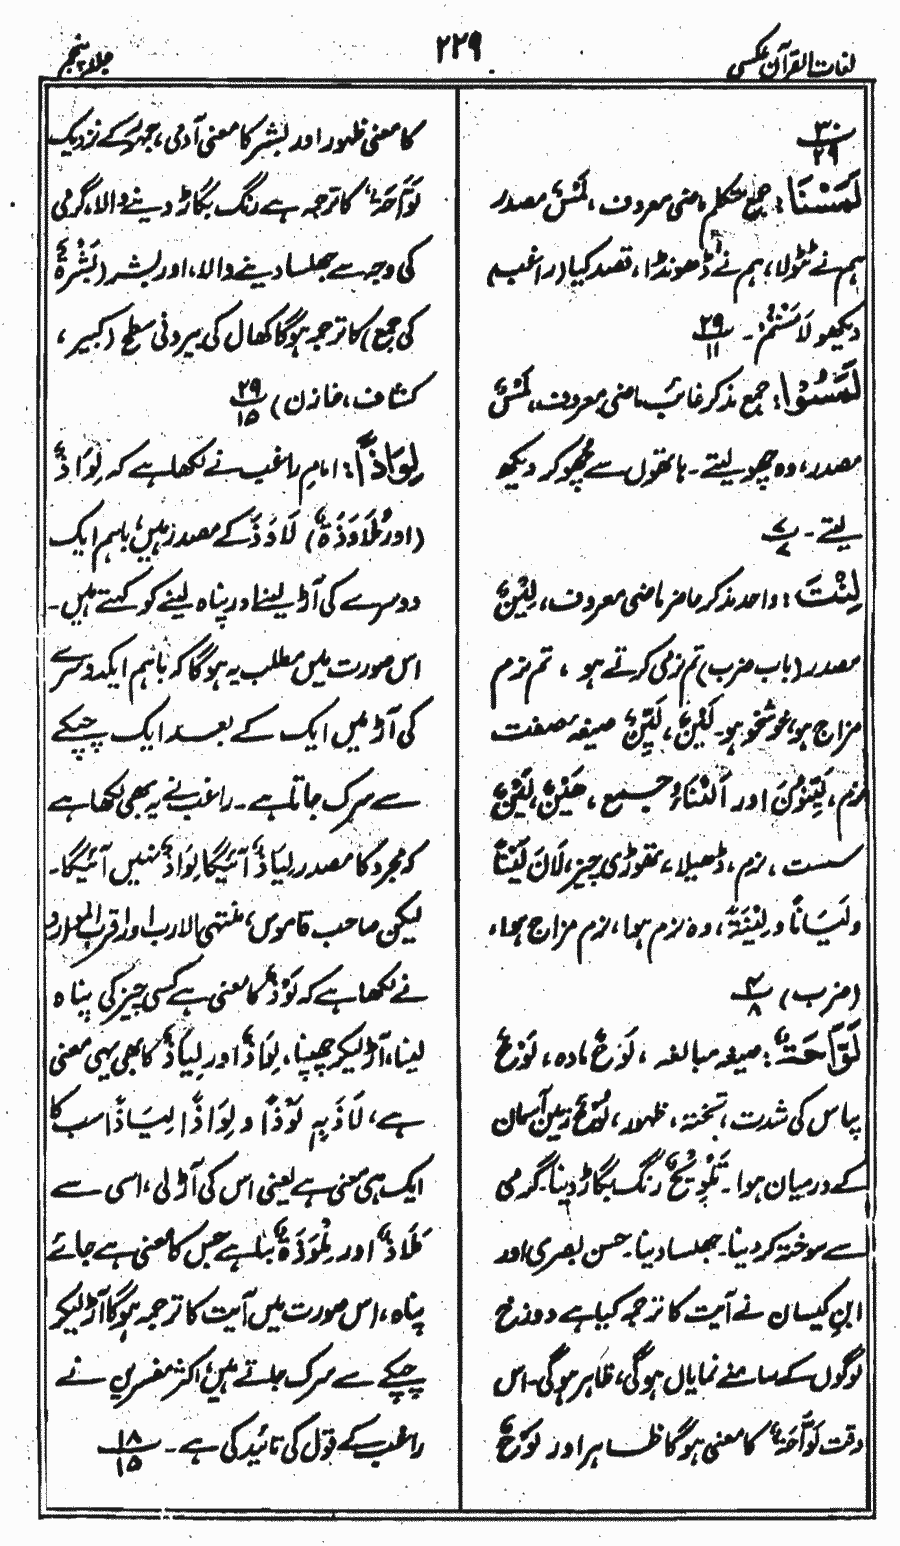 لغات القرآن عکسی
۲۲۹
جلد پنجم
۳۰
۲۹
لَمَسْنَا: جمع متکلم ماضی معروف، لَمْسٌ مصدر
ہم نے ٹٹولا، ہم نے ڈھونڈا، قصد کیا (راغب)
دیکھو لَامَسْتُمْ۔ ۲۹
۱۱
لَمَسُوْا: جمع مذکر غائب ماضی معروف، لَمْسٌ
مصدر، وہ چھو لیتے۔ ہاتھوں سے چھو کر دیکھ
لیتے۔ ۷
۷
لِنْتَ: واحد مذکر حاضر ماضی معروف، لِیْنٌ
مصدر (باب ضرب) تم نرمی کرتے ہو، تم نرم
مزاج ہو، خوشخو ہو۔ لَیْنٌ، لَیِّنٌ صیغہ صفت
نرم، لَیِّنُوْنَ اور اَلْیِنَاءُ جمع، ھَیْنٌ، لَیْنٌ
سست، نرم، ڈھیلا، تھوڑی چیز، لَانَ لَیْنًا
ولَیَانًا ولِیْنَةً، وہ نرم ہوا، نرم مزاج ہوا،
(ضرب) ۴
۸
لَوَّاحَةٌ: صیغہ مبالغہ، لَوْحٌ مادہ، لَوْحٌ
پیاس کی شدت، تختہ، ظہور، لُوْحٌ زمین آسمان
کے درمیان ہوا۔ تَلْوِیْحٌ رنگ بگاڑ دینا۔ گرمی
سے سوختہ کر دینا۔ جھلسا دینا۔ حسن بصری اور
ابن کیسان نے آیت کا ترجمہ کیا ہے دوزخ
لوگوں کے سامنے نمایاں ہوگی، ظاہر ہوگی۔ اس
وقت لَوَّاحَةٌ کا معنی ہوگا ظاہر اور لَوْحٌ
کا معنی ظہور اور بشر کا معنی آدمی، جمہور کے نزدیک
لَوَّاحَةٌ کا ترجمہ ہے رنگ بگاڑ دینے والا، گرمی
کی وجہ سے جھلسا دینے والا، اور بشر (بَشَرَةٌ
کی جمع) کا ترجمہ ہوگا کھال کی بیرونی سطح (کبیر،
کشاف، خازن) ۲۹
۱۵
لِوَاذًا: امام راغب نے لکھا ہے کہ لِوَاذٌ
(اور مُلَاوَذَةٌ) لَاوَذَ کے مصدر ہیں، باہم ایک
دوسرے کی آڑ لینا اور پناہ لینے کو کہتے ہیں۔
اس صورت میں مطلب یہ ہوگا کہ باہم ایک دوسرے
کی آڑ میں ایک کے بعد ایک چپکے
سے سرک جاتا ہے۔ راغب نے یہ بھی لکھا ہے
کہ مجرد کا مصدر لِیَاذٌ آئیگا لِوَاذٌ نہیں آئیگا۔
لیکن صاحب قاموس، منتہی الارب اور اقرب الموارد
نے لکھا ہے کہ لَوْذٌ کا معنی ہے کسی چیز کی پناہ
لینا، آڑ لیکر چھپنا، لِوَاذٌ اور لِیَاذٌ کا بھی یہی معنی
ہے، لَاذَ بِہٖ لَوْذًا و لِوَاذًا لِیَاذًا سب کا
ایک ہی معنی ہے یعنی اس کی آڑ لی، اسی سے
مَلَاذٌ اور مِلْوَذَةٌ بنا ہے جس کا معنی ہے جائے
پناہ، اس صورت میں آیت کا ترجمہ ہوگا آڑ لیکر
چپکے سے سرک جاتے ہیں، اکثر مفسرین نے
راغب کے قول کی تائید کی ہے۔ ۱۸
۱۵